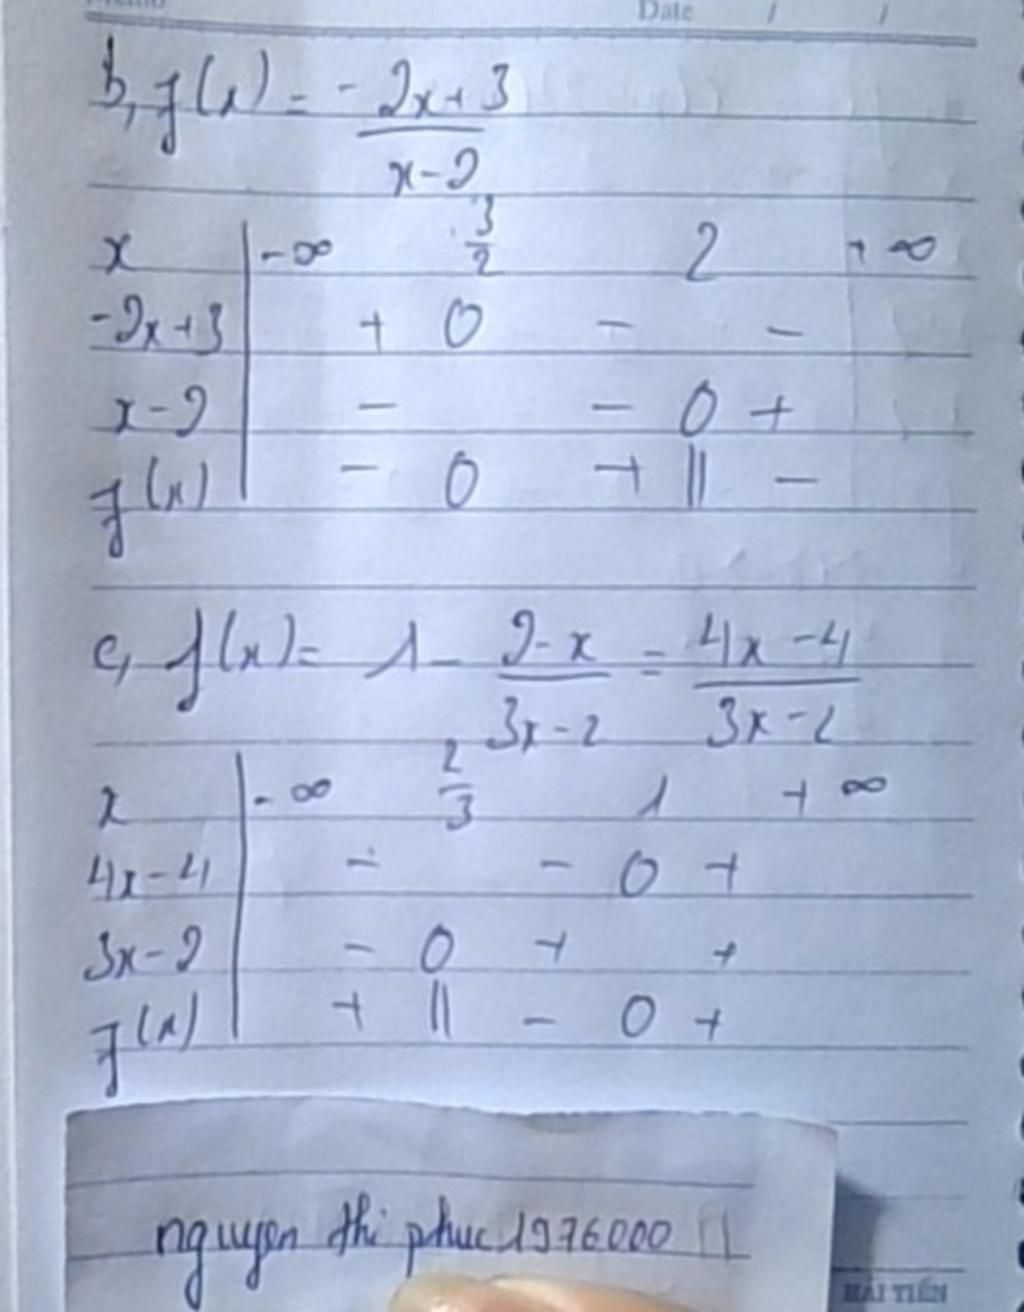 Date / /
b, f(x) = -2x+3
x-2
x -∞ 3/2 2 +∞
-2x+3 + 0 - -
x-2 - - 0 +
f(x) - 0 + || -
c, f(x) = 1 - 2-x/3x-2 = 4x-4/3x-2
x -∞ 2/3 1 +∞
4x-4 - - 0 +
3x-2 - 0 + +
f(x) + || - 0 +
nguyen thi phuc 1976000
HẢI TIẾN